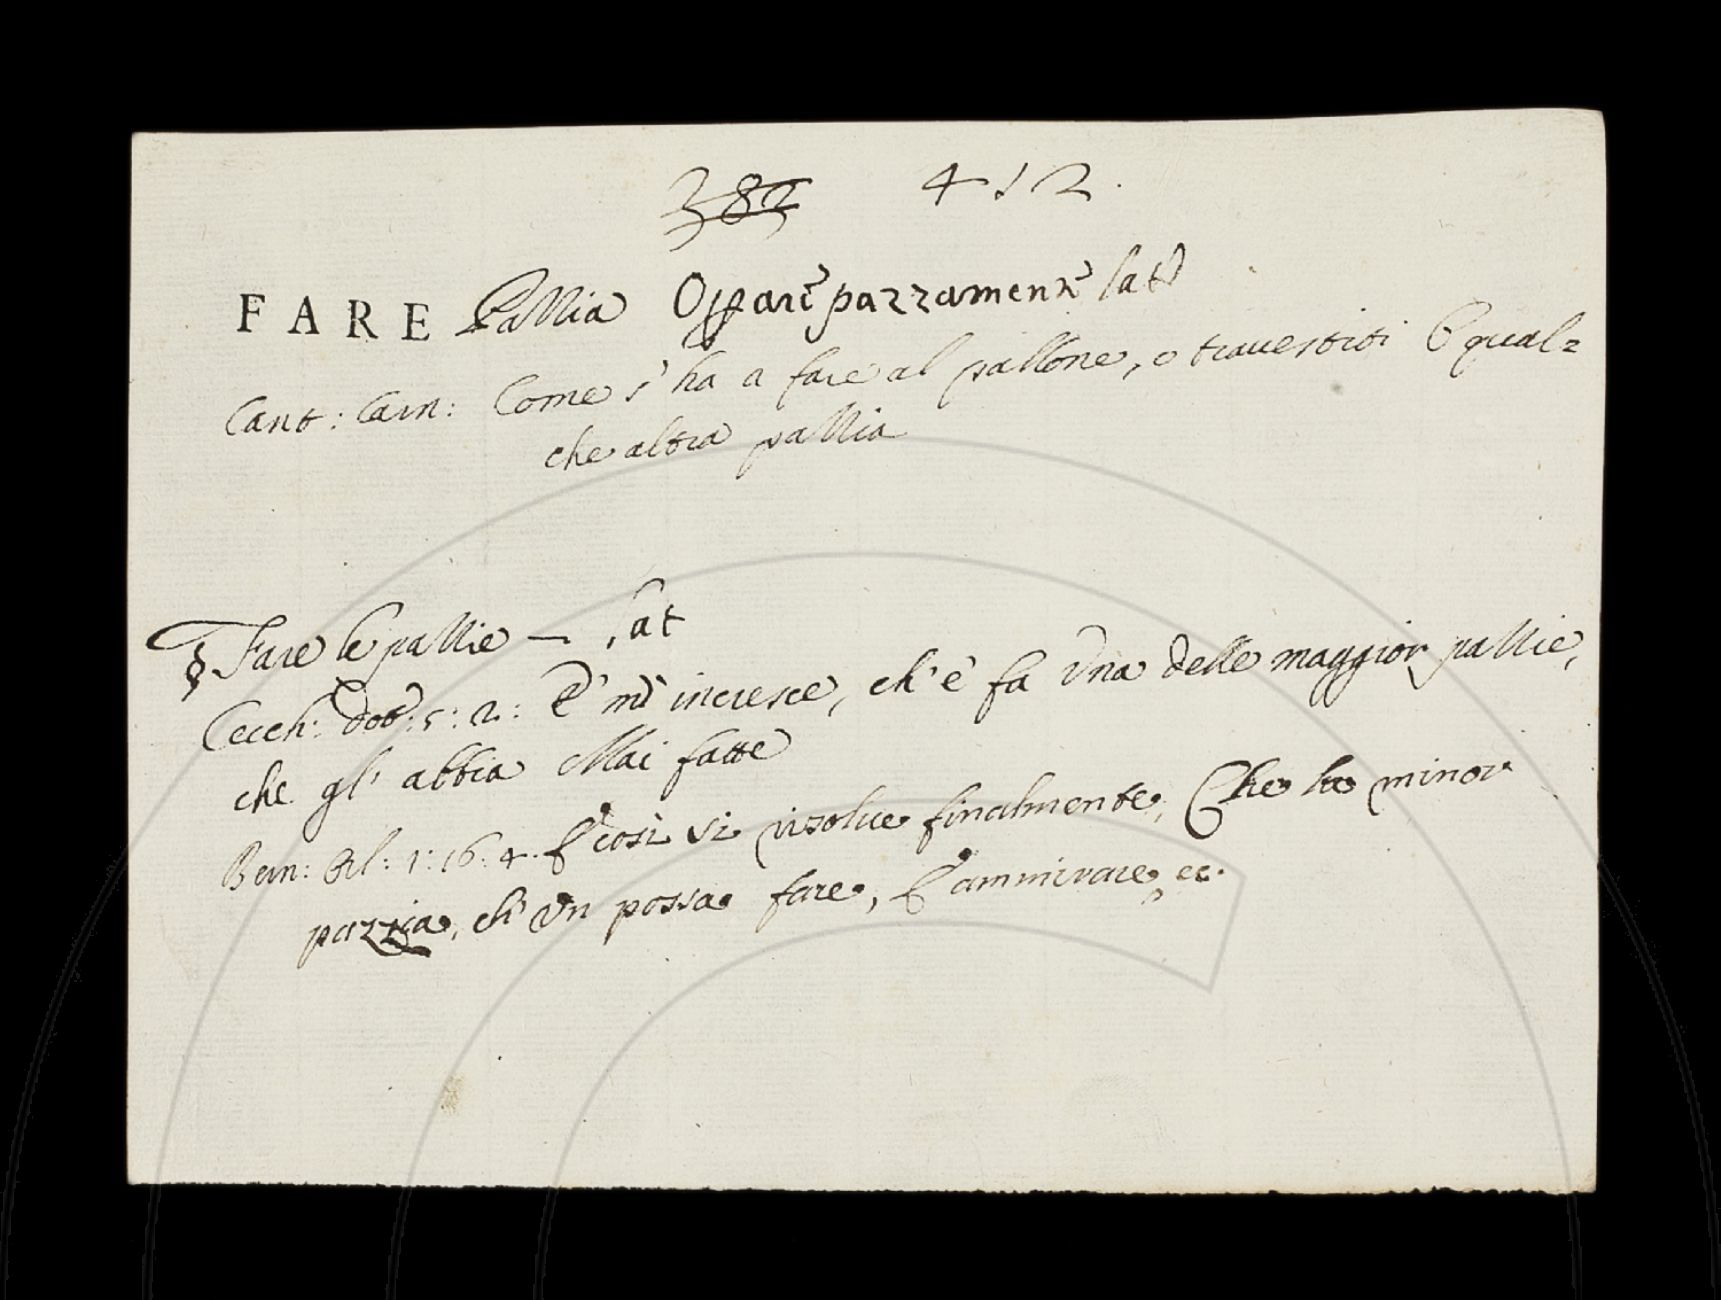 382 412.
FARE Pazzia Operare pazzamente lat
Cant: Carn: Come s'ha a fare al pallone, o travestiti O qual=
che altra pazzia
§ Fare le pazzie — lat
Cecch: Dot: 5: 2: E' mi incresce, ch'e' fa Una delle maggior pazzie,
che gl' abbia Mai fatte
Bern: Orl: 1: 16: 4. E così si risolve finalmente, Che la minor
pazzia, ch' Un possa fare, E' ammirare, ec.